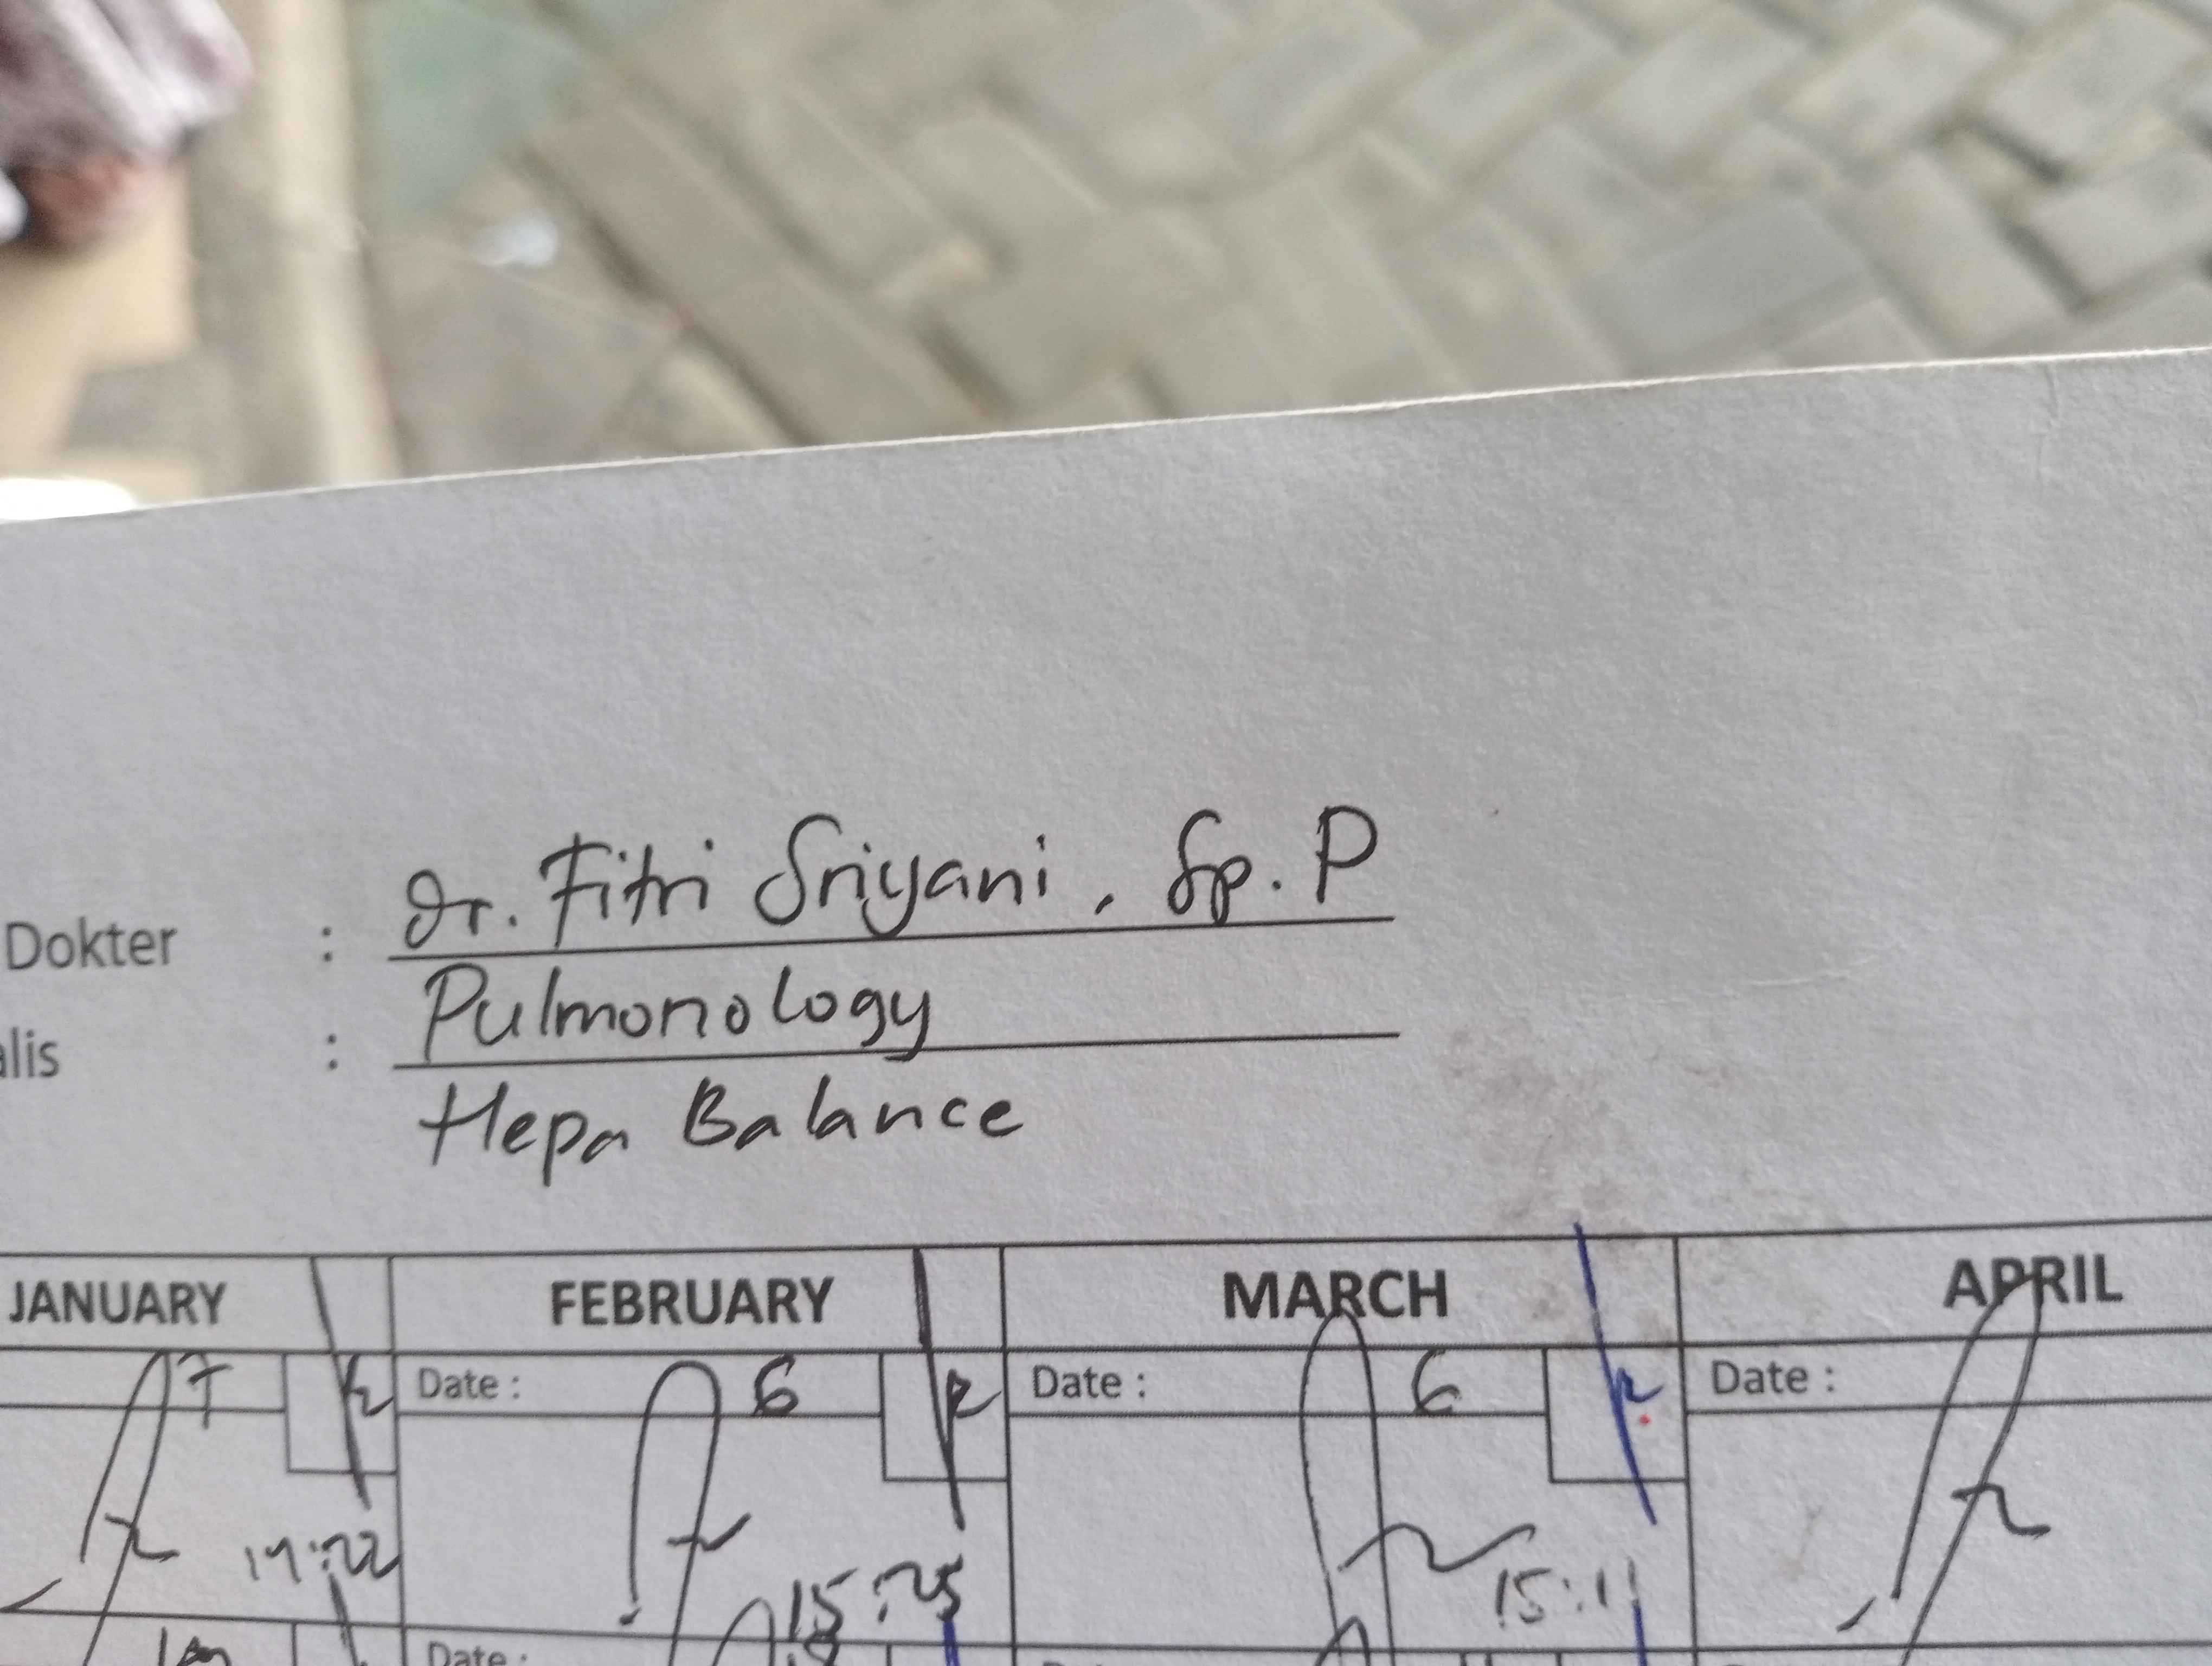 Dokter : dr. Fitri Sriyani, Sp. P
alis : Pulmonology
Hepa Balance
JANUARY FEBRUARY MARCH APRIL
7 Date : 6 Date : 6 Date :
15:25 15:11
Date :